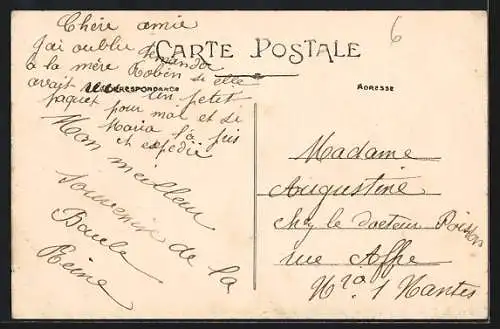 6
CARTE POSTALE
CORRESPONDANCE
ADRESSE
Chère amie
J'ai oublié demander
a la mère Robin si elle
avait un petit
paquet pour moi et si
Maria l'a pris
et expédié
Mon meilleur
souvenir de la
Baule
Reine
Madame
Augustine
chez le docteur Poisson
rue Affre
Nro 1 Nantes